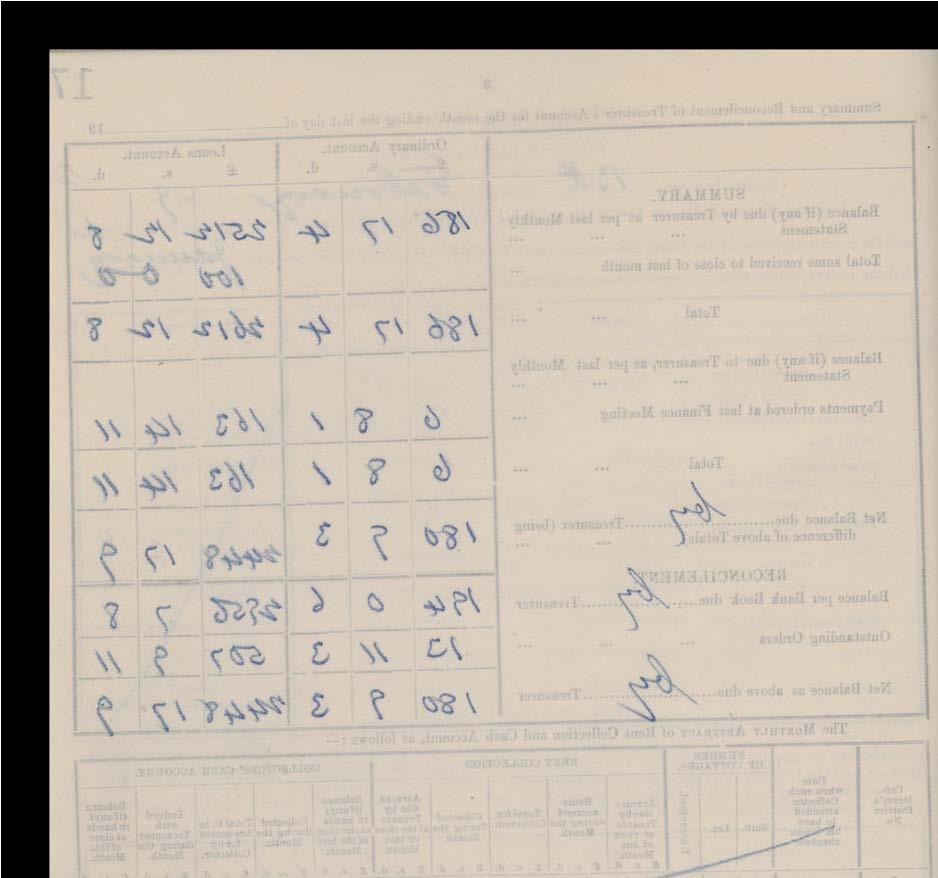 17
8
Summary and Reconcilement of Treasurer's Account for the month ending the last day of 19
Ordinary Account. Loans Account.
£ s. d. £ s. d.
SUMMARY.
Balance (if any) due by Treasurer as per last Monthly
Statement ... ... ... 186 17 4 2512 12 8
Total sums received to close of last month ... 100 0 0
Total ... ... 186 17 4 2612 12 8
Balance (if any) due to Treasurer, as per last Monthly
Statement ... ... ...
Payments ordered at last Finance Meeting ... 6 8 1 163 14 11
Total ... ... 6 8 1 163 14 11
Net Balance due by Treasurer (being
difference of above Totals) ... ... 180 9 3 2448 17 9
RECONCILEMENT
Balance per Bank Book due by Treasurer 194 0 6 2956 7 8
Outstanding Orders ... ... ... 13 11 3 507 9 11
Net Balance as above due by Treasurer 180 9 3 2448 17 9
The MONTHLY ABSTRACT of Rent Collection and Cash Account, as follows :—
NUMBER OF COTTAGES. RENT COLLECTION. COLLECTORS' CASH ACCOUNT.
Col-lector's District No.
Date when each Collector attended to have his Books checked
Built.
Let.
Tenanted.
Arrears due by Tenants at close of last Month.
Rents accrued during the Month.
Total for Collection.
Collected during the Month.
Arrears due by Tenants at the close of this Month.
Balance (if any) in hands at the close of the last Month.
Collected during the Month.
Total to be Accounted for by Collector.
Lodged with Treasurer during the Month.
Balance (if any) in hands at close of this Month.
£ s. d. £ s. d. £ s. d. £ s. d. £ s. d. £ s. d. £ s. d. £ s. d. £ s. d. £ s. d.